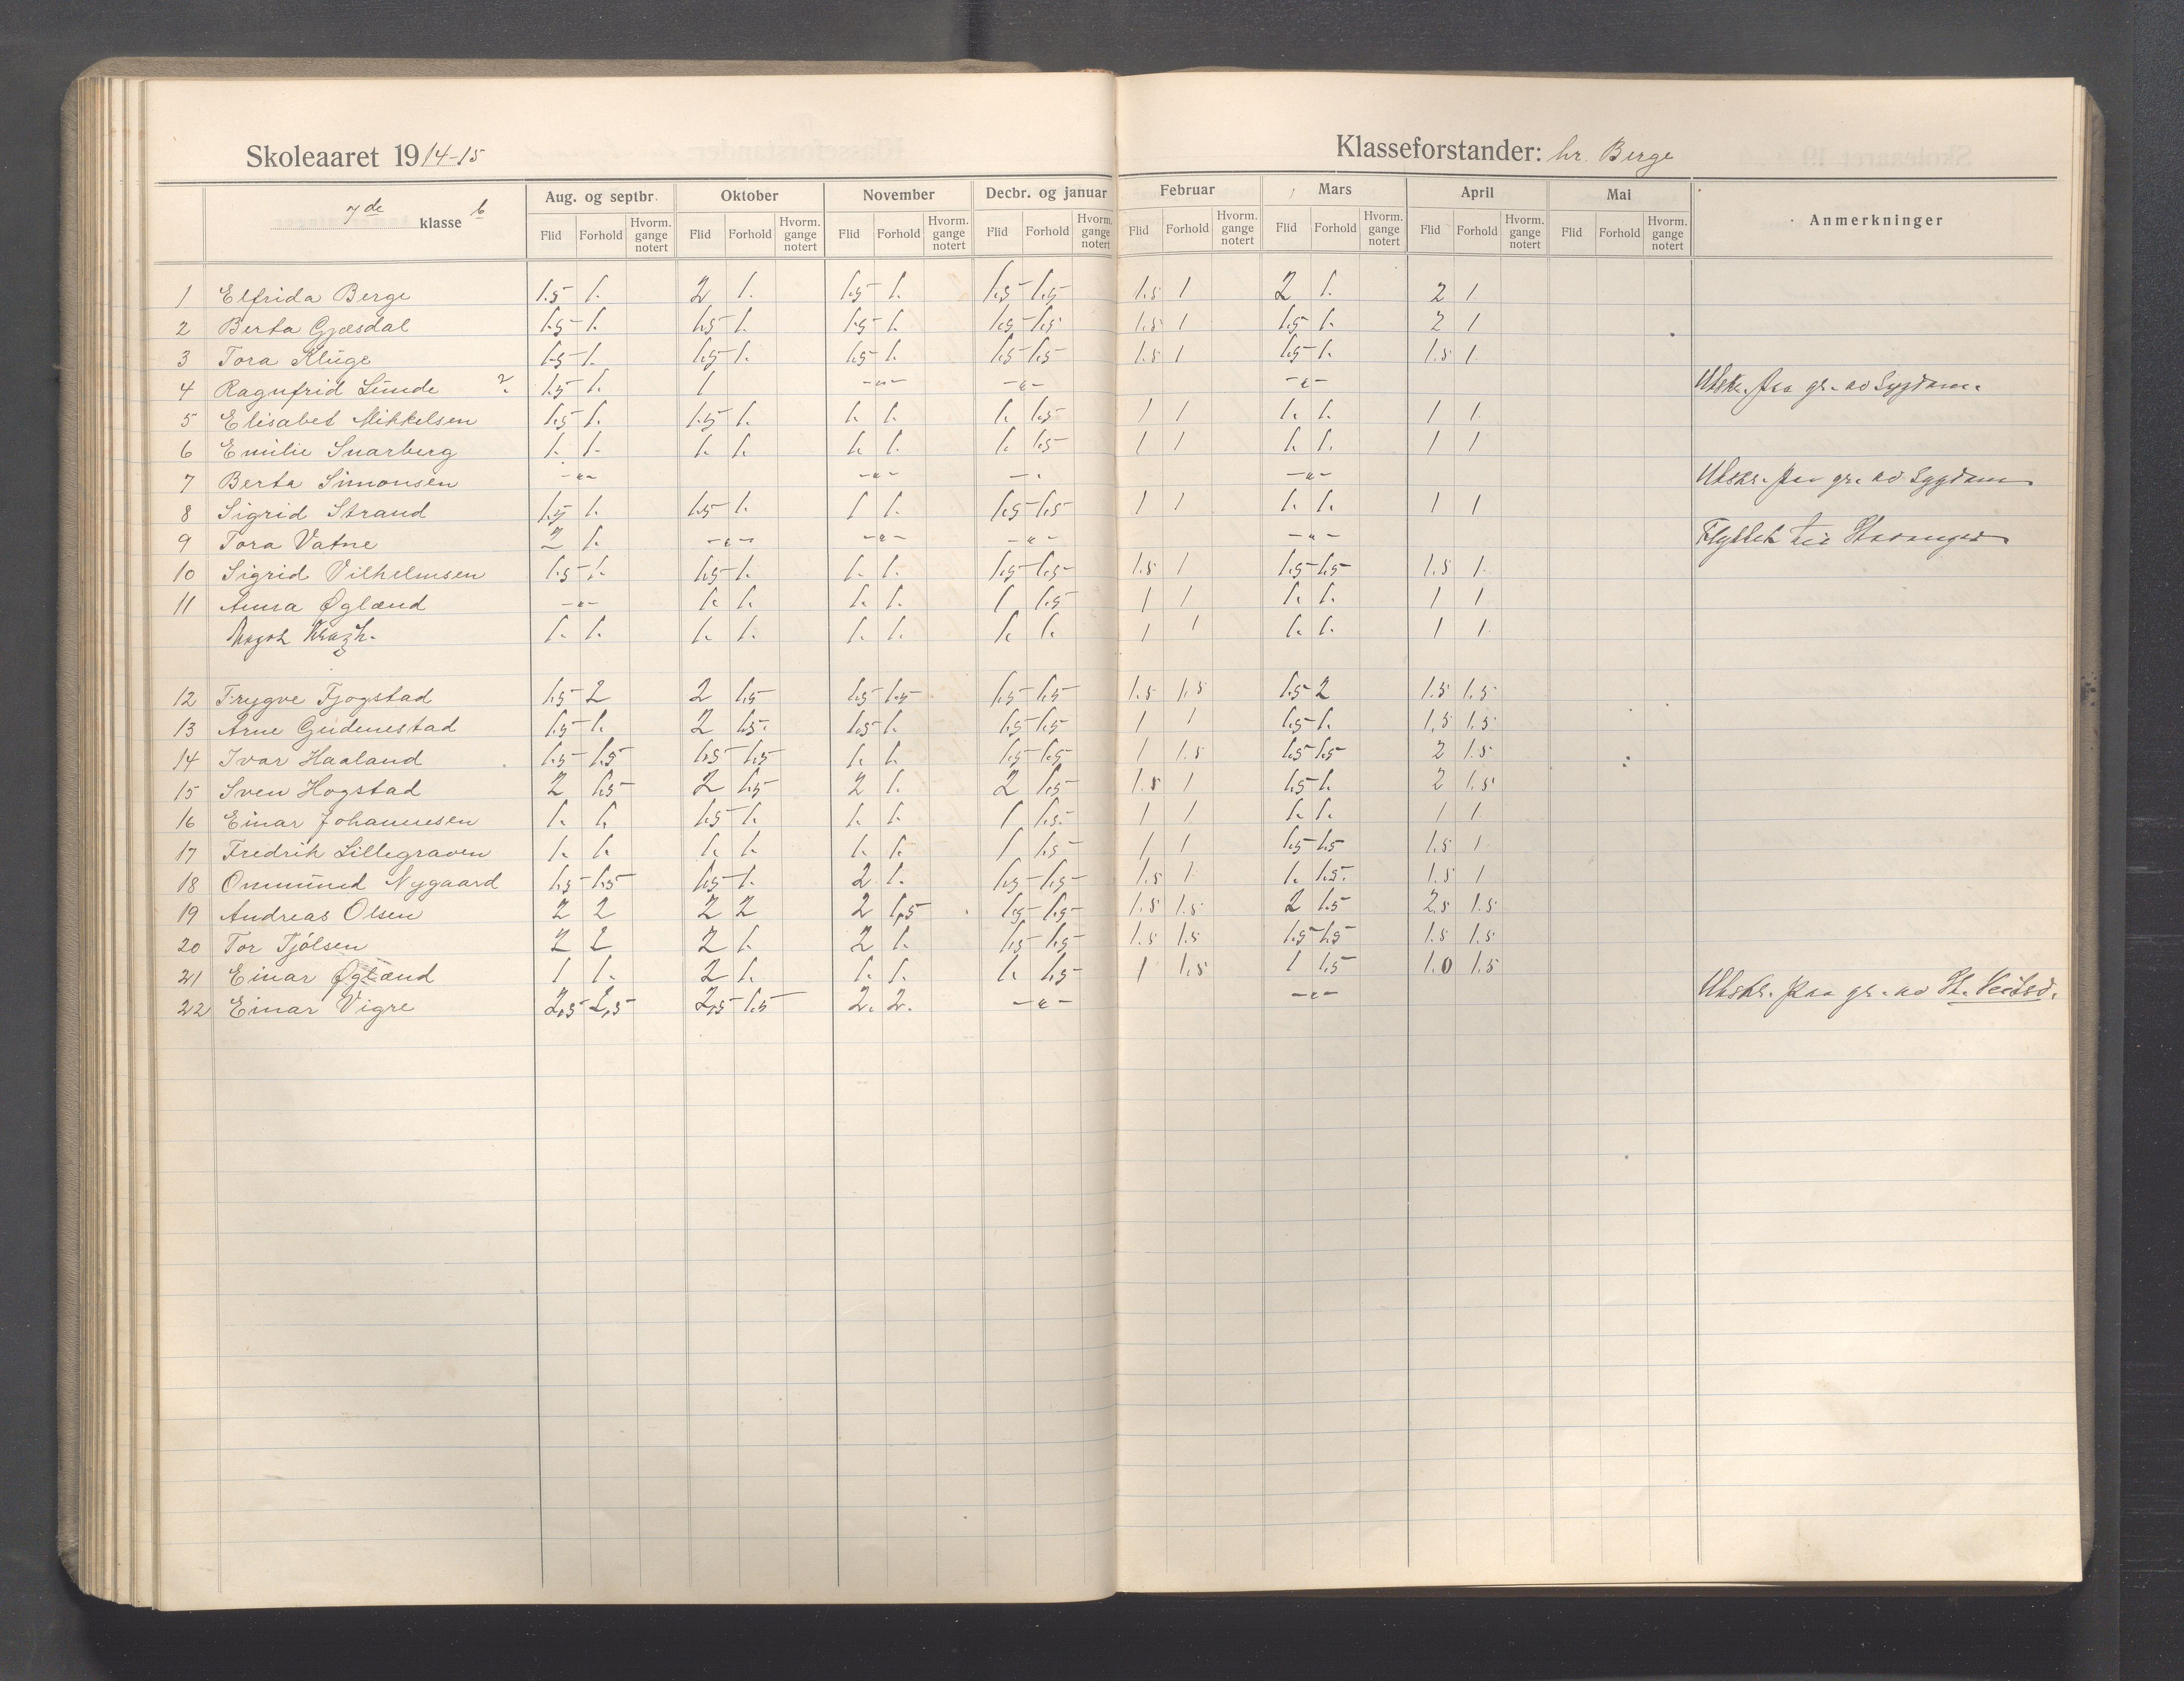 Skoleaaret 1914-15
Klasseforstander: hr. Berge
7de klasse b
Aug. og septbr. Oktober November Decbr. og januar Februar Mars April Mai Anmerkninger
Flid Forhold Hvorm. gange notert Flid Forhold Hvorm. gange notert Flid Forhold Hvorm. gange notert Flid Forhold Hvorm. gange notert Flid Forhold Hvorm. gange notert Flid Forhold Hvorm. gange notert Flid Forhold Hvorm. gange notert Flid Forhold Hvorm. gange notert
1 Elfrida Berge 1.5 1. 2 1. 1.5 1. 1.5 1.5 1.5 1 2 1. 2 1
2 Berta Gjæsdal 1.5 1. 1.5 1. 1.5 1. 1.5 1.5 1.5 1 1.5 1. 2 1
3 Tora Kluge 1.5 1. 1.5 1. 1.5 1. 1.5 1.5 1.5 1 1.5 1. 1.5 1
4 Ragnfrid Lunde ? 1.5 1. 1 -"- -"- -"- Utskr. paa gr. av Sygdom.
5 Elisabet Mikkelsen 1.5 1. 1.5 1. 1. 1. 1. 1.5 1 1 1. 1. 1 1
6 Emilie Snarberg 1. 1. 1. 1. 1. 1. 1. 1.5 1 1 1. 1. 1 1
7 Berta Simonsen -"- -"- -. -"- Utskr. paa gr. av Sygdom
8 Sigrid Strand 1.5 1. 1.5 1. 1 1. 1.5 1.5 1 1 1. 1. 1 1
9 Tora Vatne 2 1. -"- -"- -"- -"- Flyttet til Stavanger
10 Sigrid Vilhelmsen 1.5 1. 1.5 1. 1. 1. 1.5 1.5 1.5 1 1.5 1.5 1.5 1
11 Anna Øglænd -"- 1. 1. 1. 1. 1 1.5 1 1 1. 1. 1 1
1. 1. 1. 1. 1. 1. 1. 1. 1 1 1. 1. 1 1
12 Trygve Fjogstad 1.5 2 2 1.5 1.5 1.5 1.5 1.5 1.5 1.5 1.5 2 1.5 1.5
13 Arne Gudmestad 1.5 1. 2 1.5 1.5 1. 1.5 1.5 1 1 1.5 1. 1.5 1.5
14 Ivar Haaland 1.5 1.5 1.5 1.5 1. 1. 1.5 1.5 1 1.5 1.5 1.5 2 1.5
15 Sven Hogstad 2 1.5 2 1.5 2 1. 2 1.5 1.5 1 1.5 1. 2 1.5
16 Einar Johannesen 1. 1. 1.5 1. 1. 1. 1 1.5 1 1 1. 1. 1 1
17 Fredrik Lillegraven 1. 1. 1. 1. 1. 1. 1 1.5 1 1 1.5 1.5 1.5 1
18 Ommund Nygaard 1.5 1.5 1.5 1. 2 1. 1.5 1.5 1.5 1 1. 1.5 1.5 1
19 Andreas Olsen 2 2 2 2 2 1.5 1.5 1.5 1.5 1.5 2 1.5 2.5 1.5
20 Tor Tjølsen 2 2 2 1. 2 1. 1.5 1.5 1.5 1.5 1.5 1.5 1.5 1.5
21 Einar Øglænd 1 1. 2 1. 1. 1. 1. 1.5 1 1.5 1 1.5 1.0 1.5
22 Einar Vigre 2,5 2,5 2,5 1.5 2. 2. -"- -"- Utskr. paa gr. av